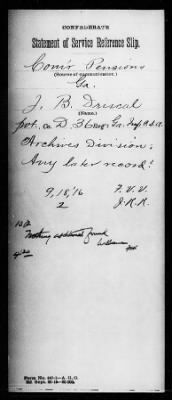 CONFEDERATE
Statement of Service Reference Slip.
Com'r Pensions
(Source of communication.)
Ga.
J. B. Driscal
(Name.)
pvt. Co D. 36 Ga. Inf. C.S.A.
Archives Division:
Any later record?
9/18/16 F. V. V.
2 J.R.R.
Nothing additional found
Form No. 447-1—A. G. O.